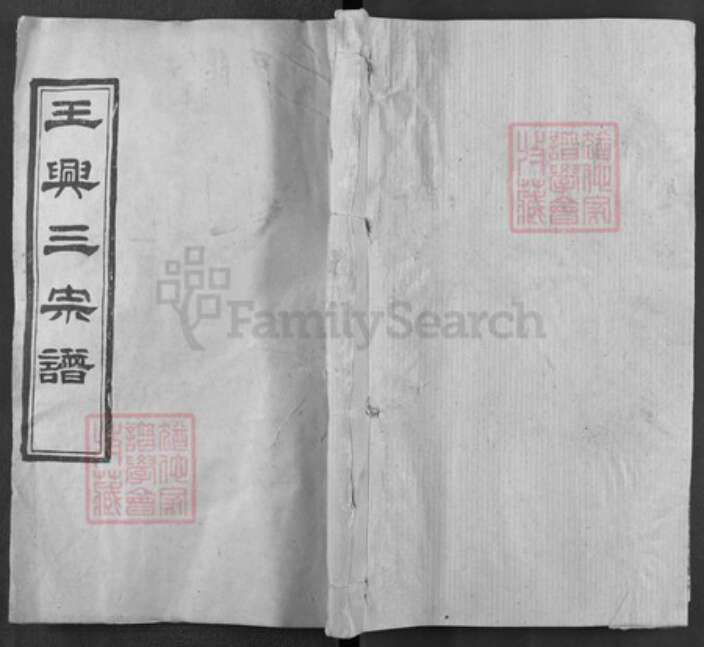 王興三宗譜
猶他家
譜學會
收藏
猶他家
譜學會
收藏
FamilySearch